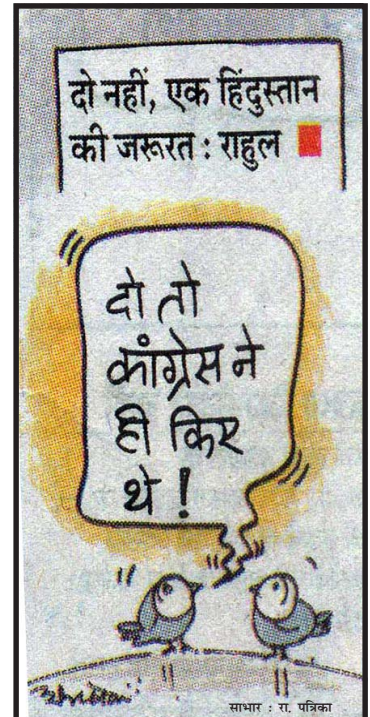 दो नहीं, एक हिंदुस्तान
की जरूरत : राहुल
दो तो
कांग्रेस ने
ही किए
थे !
साभार : रा. पत्रिका